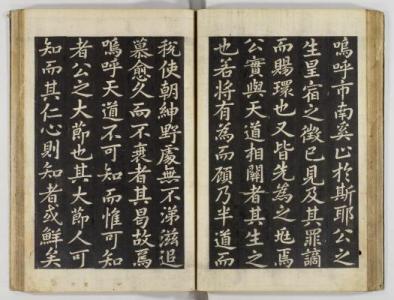 嗚呼市南奚止於斯耶公之
生星宿之徵已見及其罪謫
而賜環也又皆先為之兆焉
公實與天道相關者其生之
也若將有為而顧乃半道而
我使朝紳野處無不涕滋追
慕愈久而不衰者其曷故焉
嗚呼天道不可知而惟可知
者公之大節也其大節人可
知而其仁心則知者或鮮矣